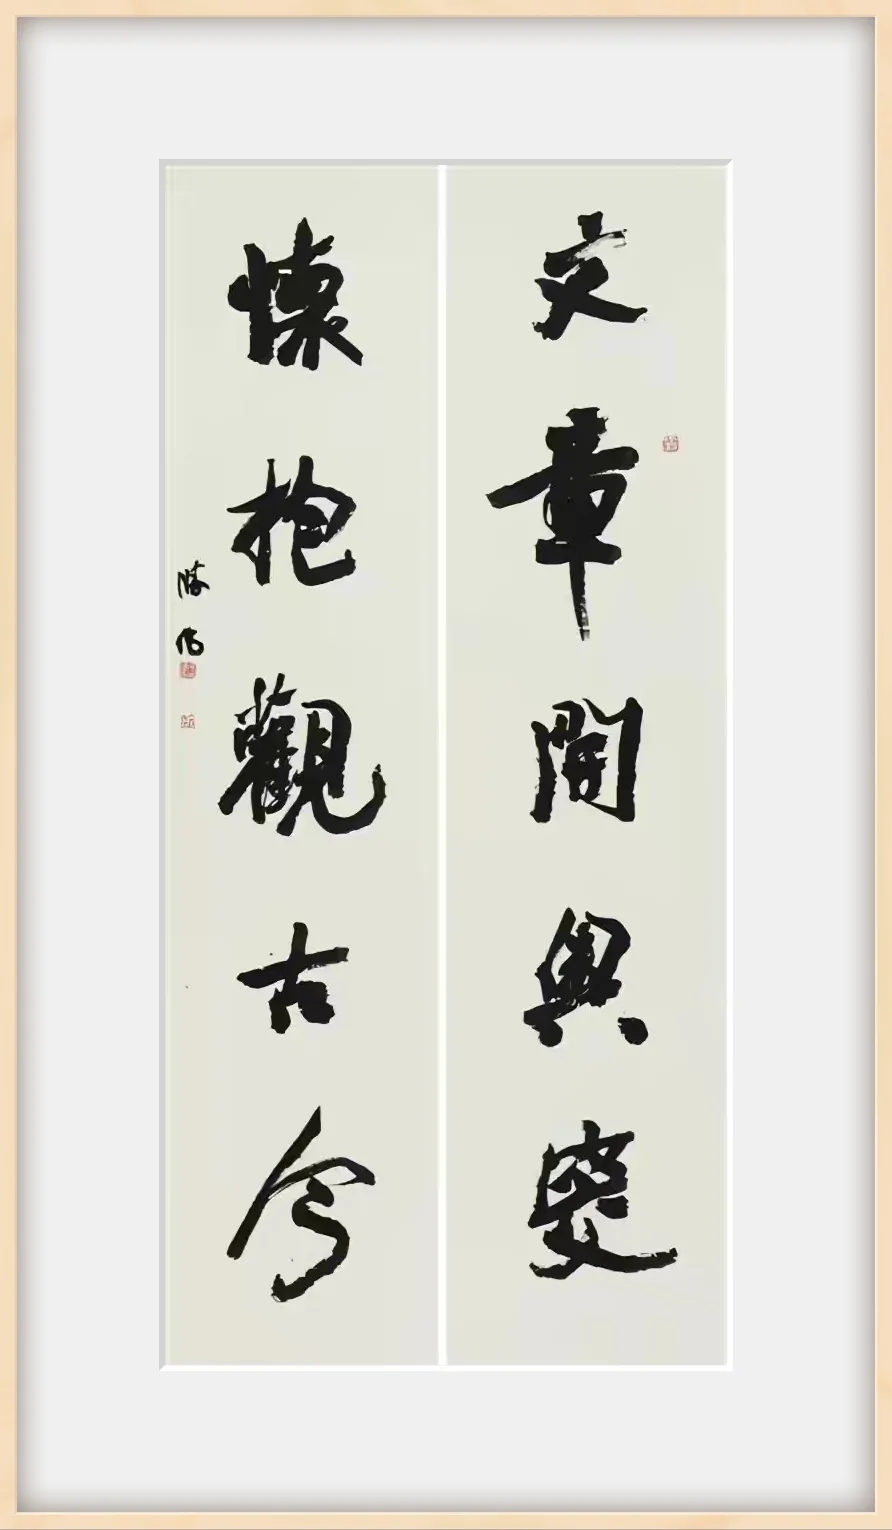 文章開奧變
懷抱觀古今